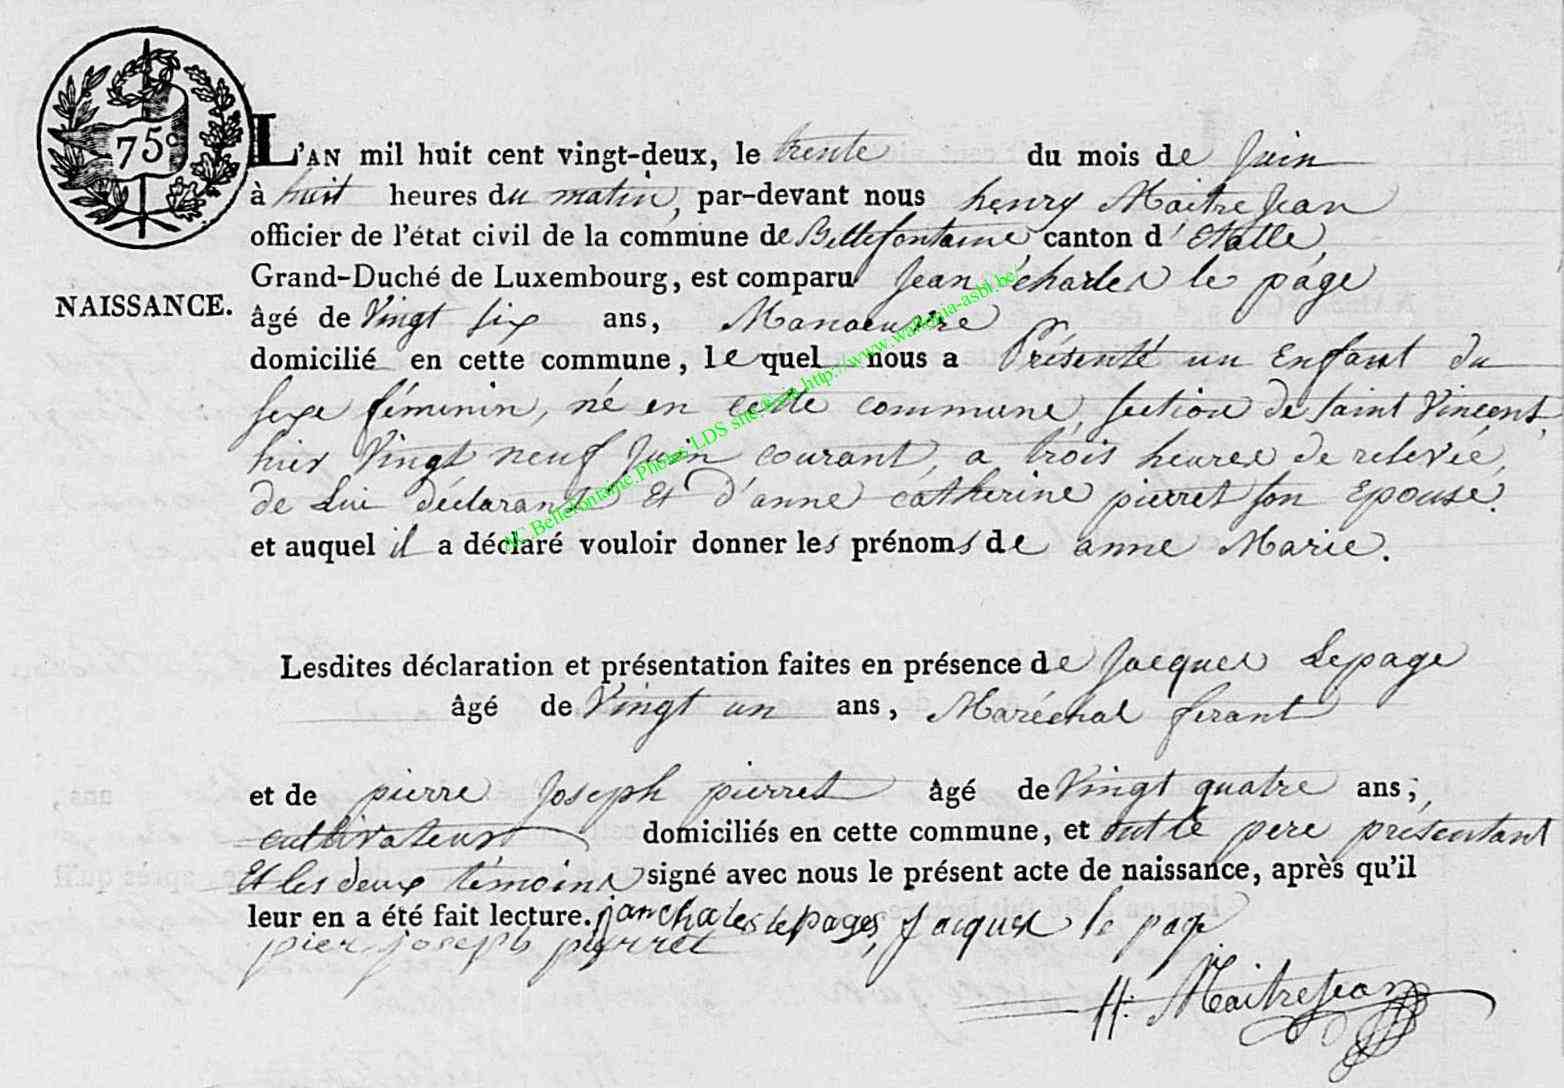 75c
NAISSANCE.
L'AN mil huit cent vingt-deux, le trente du mois de Juin
à huit heures du matin, par-devant nous henry Maitre Jean
officier de l'état civil de la commune de Bellefontaine canton d'Etalle,
Grand-Duché de Luxembourg, est comparu Jean charles le page
âgé de Vingt six ans, Manoeuvre
domicilié en cette commune, le quel nous a Présenté un Enfant du
sexe féminin, né en cette commune, section de saint Vincent,
hier Vingt neuf Juin courant, a trois heures de relevée,
de Lui déclarant Et d'anne catherine pierret son Epouse.
et auquel il a déclaré vouloir donner les prénoms de anne Marie.
Lesdites déclaration et présentation faites en présence de Jacques Lepage
âgé de Vingt un ans, Maréchal ferant
et de pierre Joseph pierret âgé de Vingt quatre ans;
cultivateur domiciliés en cette commune, et ont le pere présentant
Et les deux témoins signé avec nous le présent acte de naissance, après qu'il
leur en a été fait lecture. jan chales lepages, Jacques le page
pier joseph pierret
H. MaitreJean
AC Bellefontaine Photos LDS site http://www.wallonia-asbl.be/